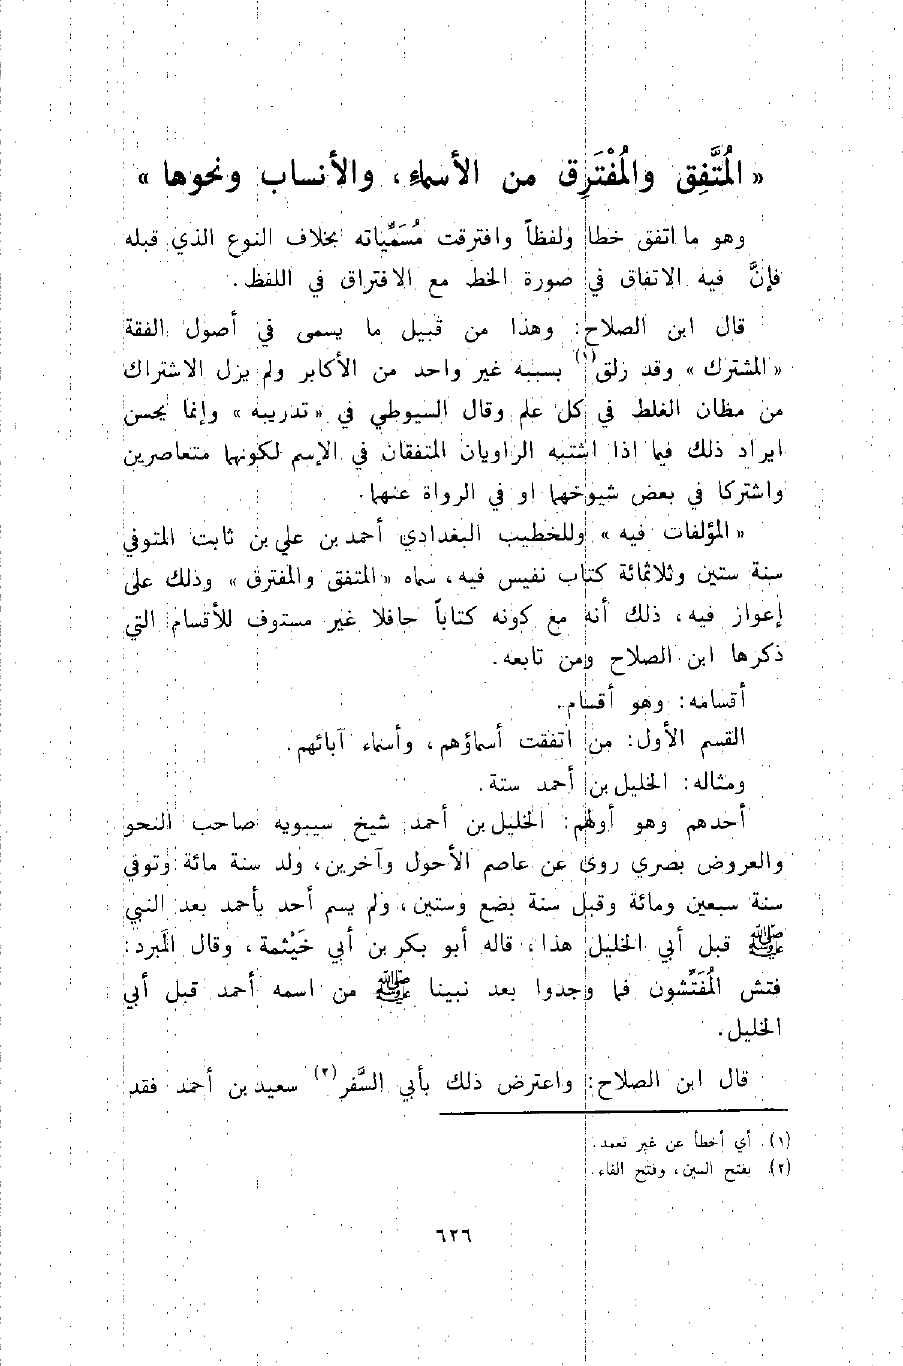 « المُتَّفِق والمُفْتَرِق من الأسماء ، والأنساب ونحوها »
وهو ما اتفق خطا ولفظاً وافترقت مُسَمِّياته بخلاف النوع الذي قبله
فإنَّ فيه الاتفاق في صورة الخط مع الافتراق في اللفظ .
قال ابن الصلاح : وهذا من قبيل ما يسمى في أصول الفقة
« المشترك » وقد زلق(١) بسببه غير واحد من الأكابر ولم يزل الاشتراك
من مظان الغلط في كل علم وقال السيوطي في « تدريبه » وإنما يحسن
ايراد ذلك فيما اذا اشتبه الراويان المتفقان في الإسم لكونهما متعاصرين
واشتركا في بعض شيوخهما او في الرواة عنهما .
« المؤلفات فيه » وللخطيب البغدادي أحمد بن علي بن ثابت المتوفي
سنة ستين وثلاثمائة كتاب نفيس فيه ، سماه « المتفق والمفترق » وذلك على
إعواز فيه ، ذلك أنه مع كونه كتاباً حافلا غير مستوف للأقسام التي
ذكرها ابن الصلاح ومن تابعه .
أقسامه : وهو أقسام .
القسم الأول : من اتفقت أسماؤهم ، وأسماء آبائهم .
ومثاله : الخليل بن أحمد ستة .
أحدهم وهو أولهم : الخليل بن أحمد شيخ سيبويه صاحب النحو
والعروض بصري روى عن عاصم الأحول وآخرين ، ولد سنة مائة وتوفي
سنة سبعين ومائة وقبل سنة بضع وستين ، ولم يسم أحد بأحمد بعد النبي
ﷺ قبل أبي الخليل هذا ، قاله أبو بكر بن أبي خَيْثمة ، وقال المَبرد :
فتش المُفَتِّشون فما وجدوا بعد نبينا ﷺ من اسمه أحمد قبل أبي
الخليل .
قال ابن الصلاح : واعترض ذلك بأبي السَّفر(٢) سعيد بن أحمد فقد
(١) . أي أخطأ عن غير تعمد .
(٢) بفتح السين ، وفتح الفاء .
٦٢٦